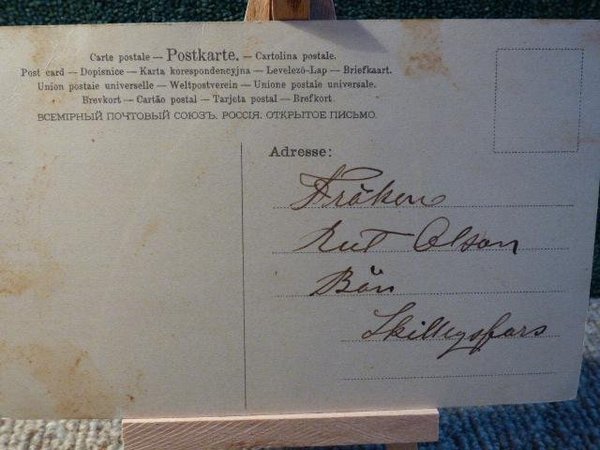 Carte postale — Postkarte. — Cartolina postale.
Post card — Dopisnice — Karta korespondencyjna — Levelező-Lap — Briefkaart.
Union postale universelle — Weltpostverein — Unione postale universale.
Brevkort — Cartão postal — Tarjeta postal — Brefkort
ВСЕМІРНЫЙ ПОЧТОВЫЙ СОЮЗЪ. РОССІЯ. ОТКРЫТОЕ ПИСЬМО.
Adresse:
Fröken
Rut Olson
Bön